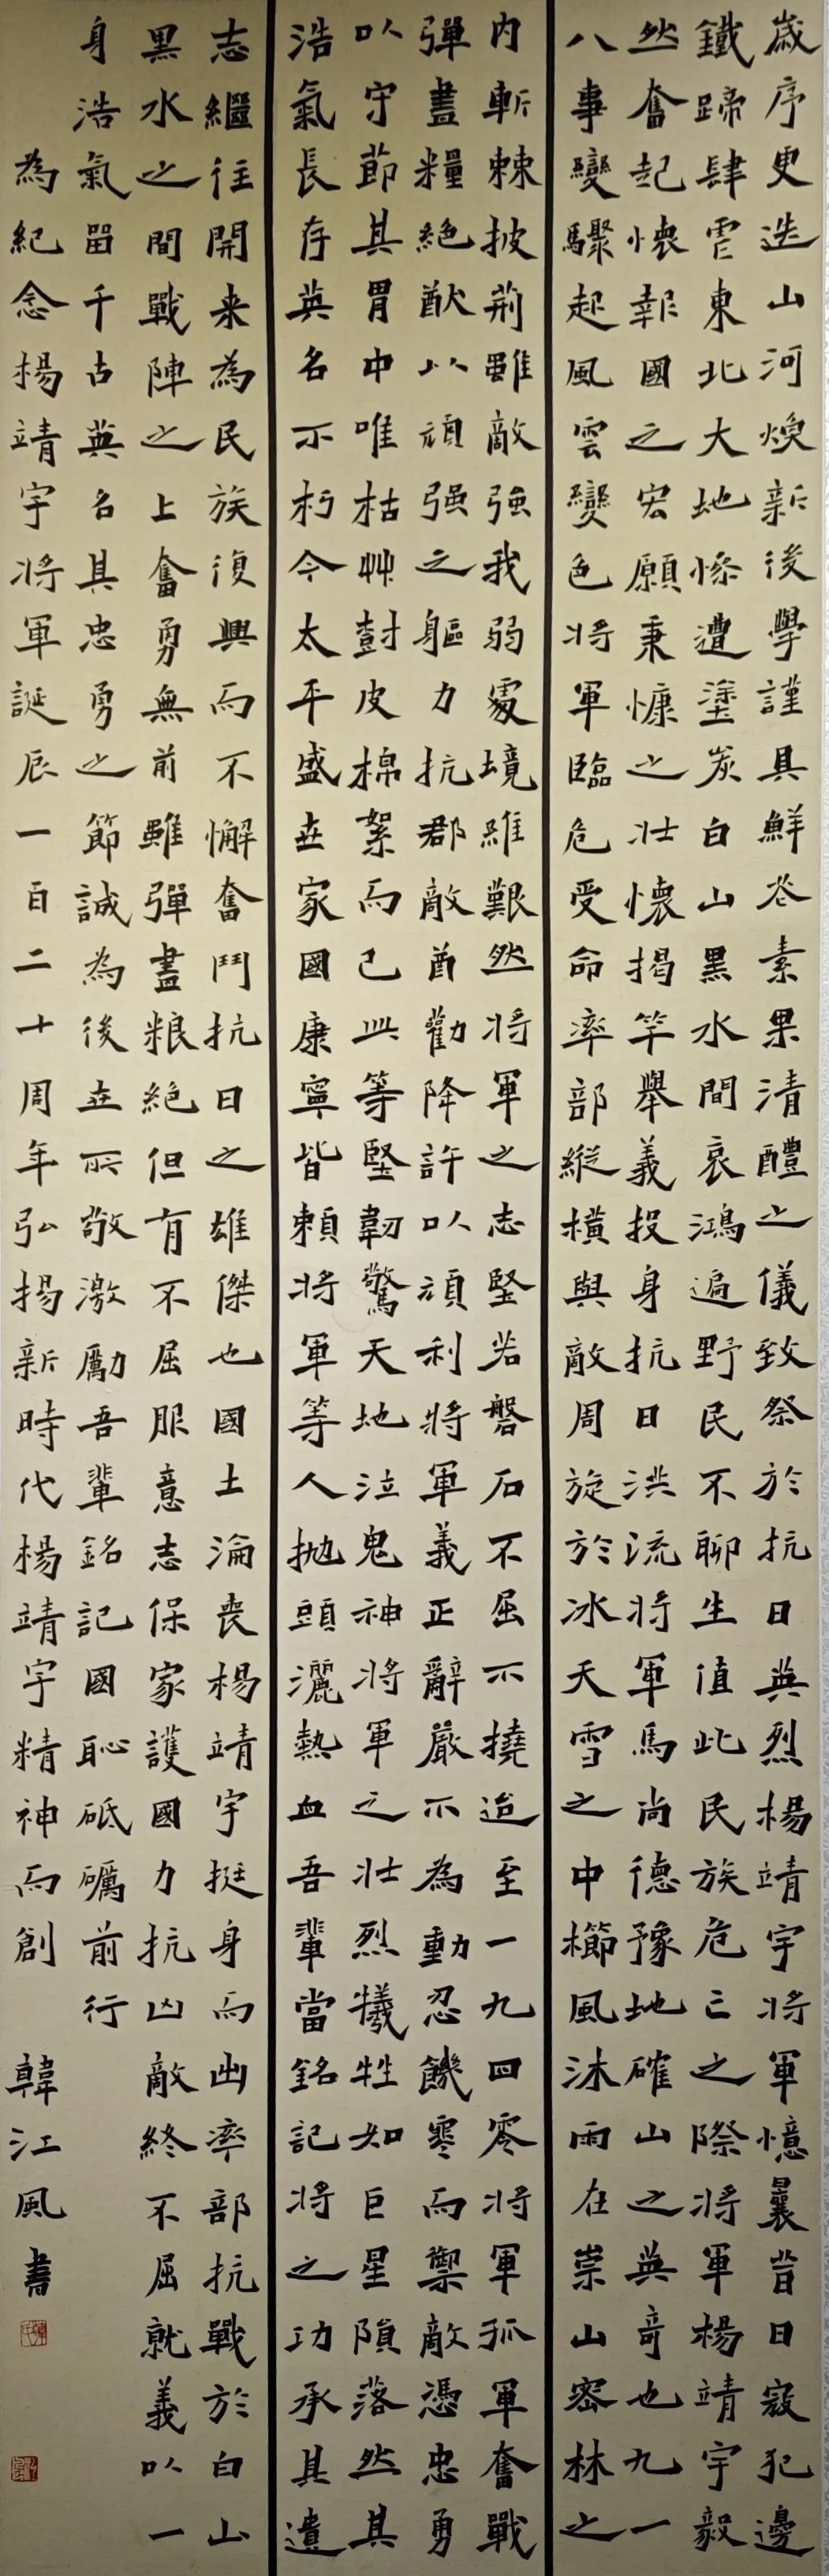 歲序更迭山河煥新後學謹具鮮花素果清醴之儀致祭於抗日英烈楊靖宇將軍憶曩昔日寇犯邊
鐵蹄肆虐東北大地慘遭塗炭白山黑水間哀鴻遍野民不聊生值此民族危亡之際將軍楊靖宇毅
然奮起懷報國之宏願秉慷之壯懷揭竿舉義投身抗日洪流將軍馬尚德豫地確山之英奇也九一
八事變驟起風雲變色將軍臨危受命率部縱橫與敵周旋於冰天雪之中櫛風沐雨在崇山密林之
内斬棘披荊雖敵強我弱處境維艱然將軍之志堅若磐石不屈不撓迨至一九四零將軍孤軍奮戰
彈盡糧絕猷以頑强之軀力抗郡敵酋勸降許以頑利將軍義正辭嚴不為動忍饑寒而禦敵憑忠勇
以守節其胃中唯枯艸封皮棉絮而已此等堅韌驚天地泣鬼神將軍之壯烈犧牲知巨星隕落然其
浩氣長存英名不朽今太平盛世家國康寧皆賴將軍等人拋頭灑熱血吾輩當銘記將之功承其遺
志繼往開来為民族復興而不懈奮鬥抗日之雄傑也國土淪喪楊靖宇挺身而出率部抗戰於白山
黑水之間戰陣之上奮勇無前雖彈盡粮絕但有不屈服意志保家護國力抗凶敵終不屈就義以一
身浩氣留千古英名其忠勇之節誠為後世所敬激勵吾輩銘記國恥砥礪前行
為紀念楊靖宇將軍誕辰一百二十周年弘揚新時代楊靖宇精神而創 韓江風書